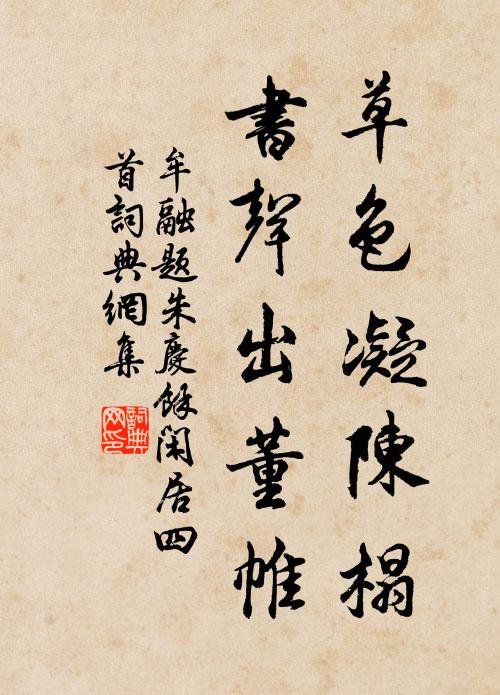 草色凝陳榻
書聲出董帷
牟融題朱慶餘閑居四
首詞典網集
詞典
网印